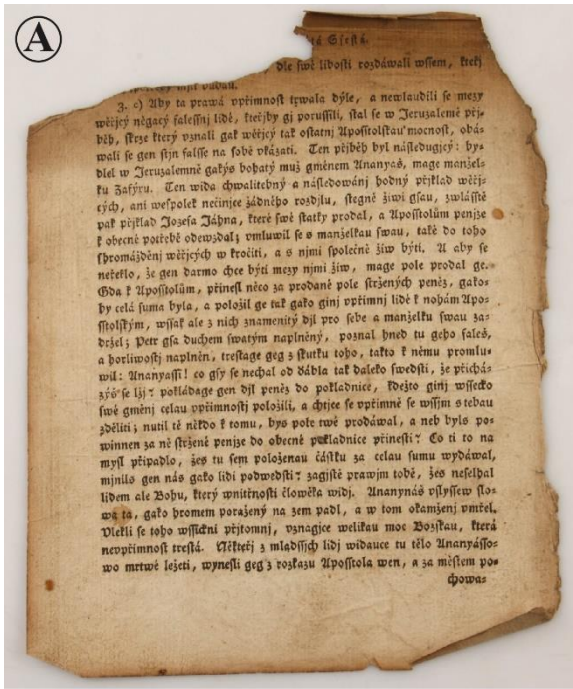 A
tá Cýrſtá.
dle ſwé liboſti rozdáwali wſſem, kteřj
3. c) Aby ta prawá vpřimnoſt trwala dýle, a newlaudili ſe mezy
wěřjcý něgacý faleſſnj lidé, kteřjby gj poruſſili, ſtal ſe w Jeruzalemě přj-
běh, ſkrze který vznali gak wěřjcý tak oſtatnj Apoſſtolſkau mocnoſt, obá-
wali ſe gen ſtjn falſſe na ſobě vkázati. Ten přjběh byl náſledugjcý: by-
dlel w Jeruzalemně gakýs bohatý muž gménem Ananyáš, mage manžel-
ku Zafýru. Ten wida chwalitebný a náſledowánj hodný přjklad wěřj-
cých, ani weſpolek nečinjce žádného rozdjlu, ſtegně žiwi gſau, zwláſſtě
pak přjklad Jozeſa Jáhna, které ſwé ſtatky prodal, a Apoſſtolům penjze
k obecné potřebě odewzdal; vmluwil ſe s manželkau ſwau, také do toho
ſhromážděnj wěřjcých w kročiti, a s nimi ſpolečně žiw býti. A aby ſe
neřeklo, že gen darmo chce býti mezy njmi žiw, mage pole prodal ge.
Gda k Apoſſtolům, přineſl něco za prodané pole ſtržených peněz, gako-
by celá ſuma byla, a položil ge tak gako ginj vpřimnj lidé k nohám Apo-
ſſtolſkým, wſſak ale z nich znamenitý djl pro ſebe a manželku ſwau za-
držel; Petr gſa duchem ſwatým naplněný, poznal hned tu geho faleš,
a horliwoſtj naplněn, treſtage geg z ſkutku toho, takto k němu promlu-
wil: Ananyaſſi! co gſy ſe nechal od ďábla tak daleko ſweſti, že přichá-
zýš ſe lži? pokládage gen djl peněz do pokladnice, kdežto ginj wſſecko
ſwé gměnj celau vpřimnoſtj položili, a chtjce ſe vpřimně ſe wſſjm s tebau
zděliti; nutil tě někdo k tomu, bys pole twé prodáwal, a neb byls po-
winnen za ně ſtržené penjze do obecné pokladnice přineſti? Co ti to na
myſl připadlo, žes tu ſem položenau částku za celau ſumu wydáwal,
mjnilo gen nás gako lidi podweſti? zagiſtě prawjm tobě, žes neſelhal
lidem ale Bohu, který wnitřnoſti člowěka widj. Ananynáš vſlyſſew ſlo-
wa ta, gako hromem poražený na zem padl, a w tom okamženj vmřel.
Vlekli ſe toho wſſickni přjtomnj, vznagjce welikau moc Bozſkau, která
nevpřimnoſt treſtá. Někteřj z mladſſjch lidj widauce tu tělo Ananyáſſo-
wo mrtwé ležeti, wyneſli geg z rozkazu Apoſſtola wen, a za měſtem po-
chowa-